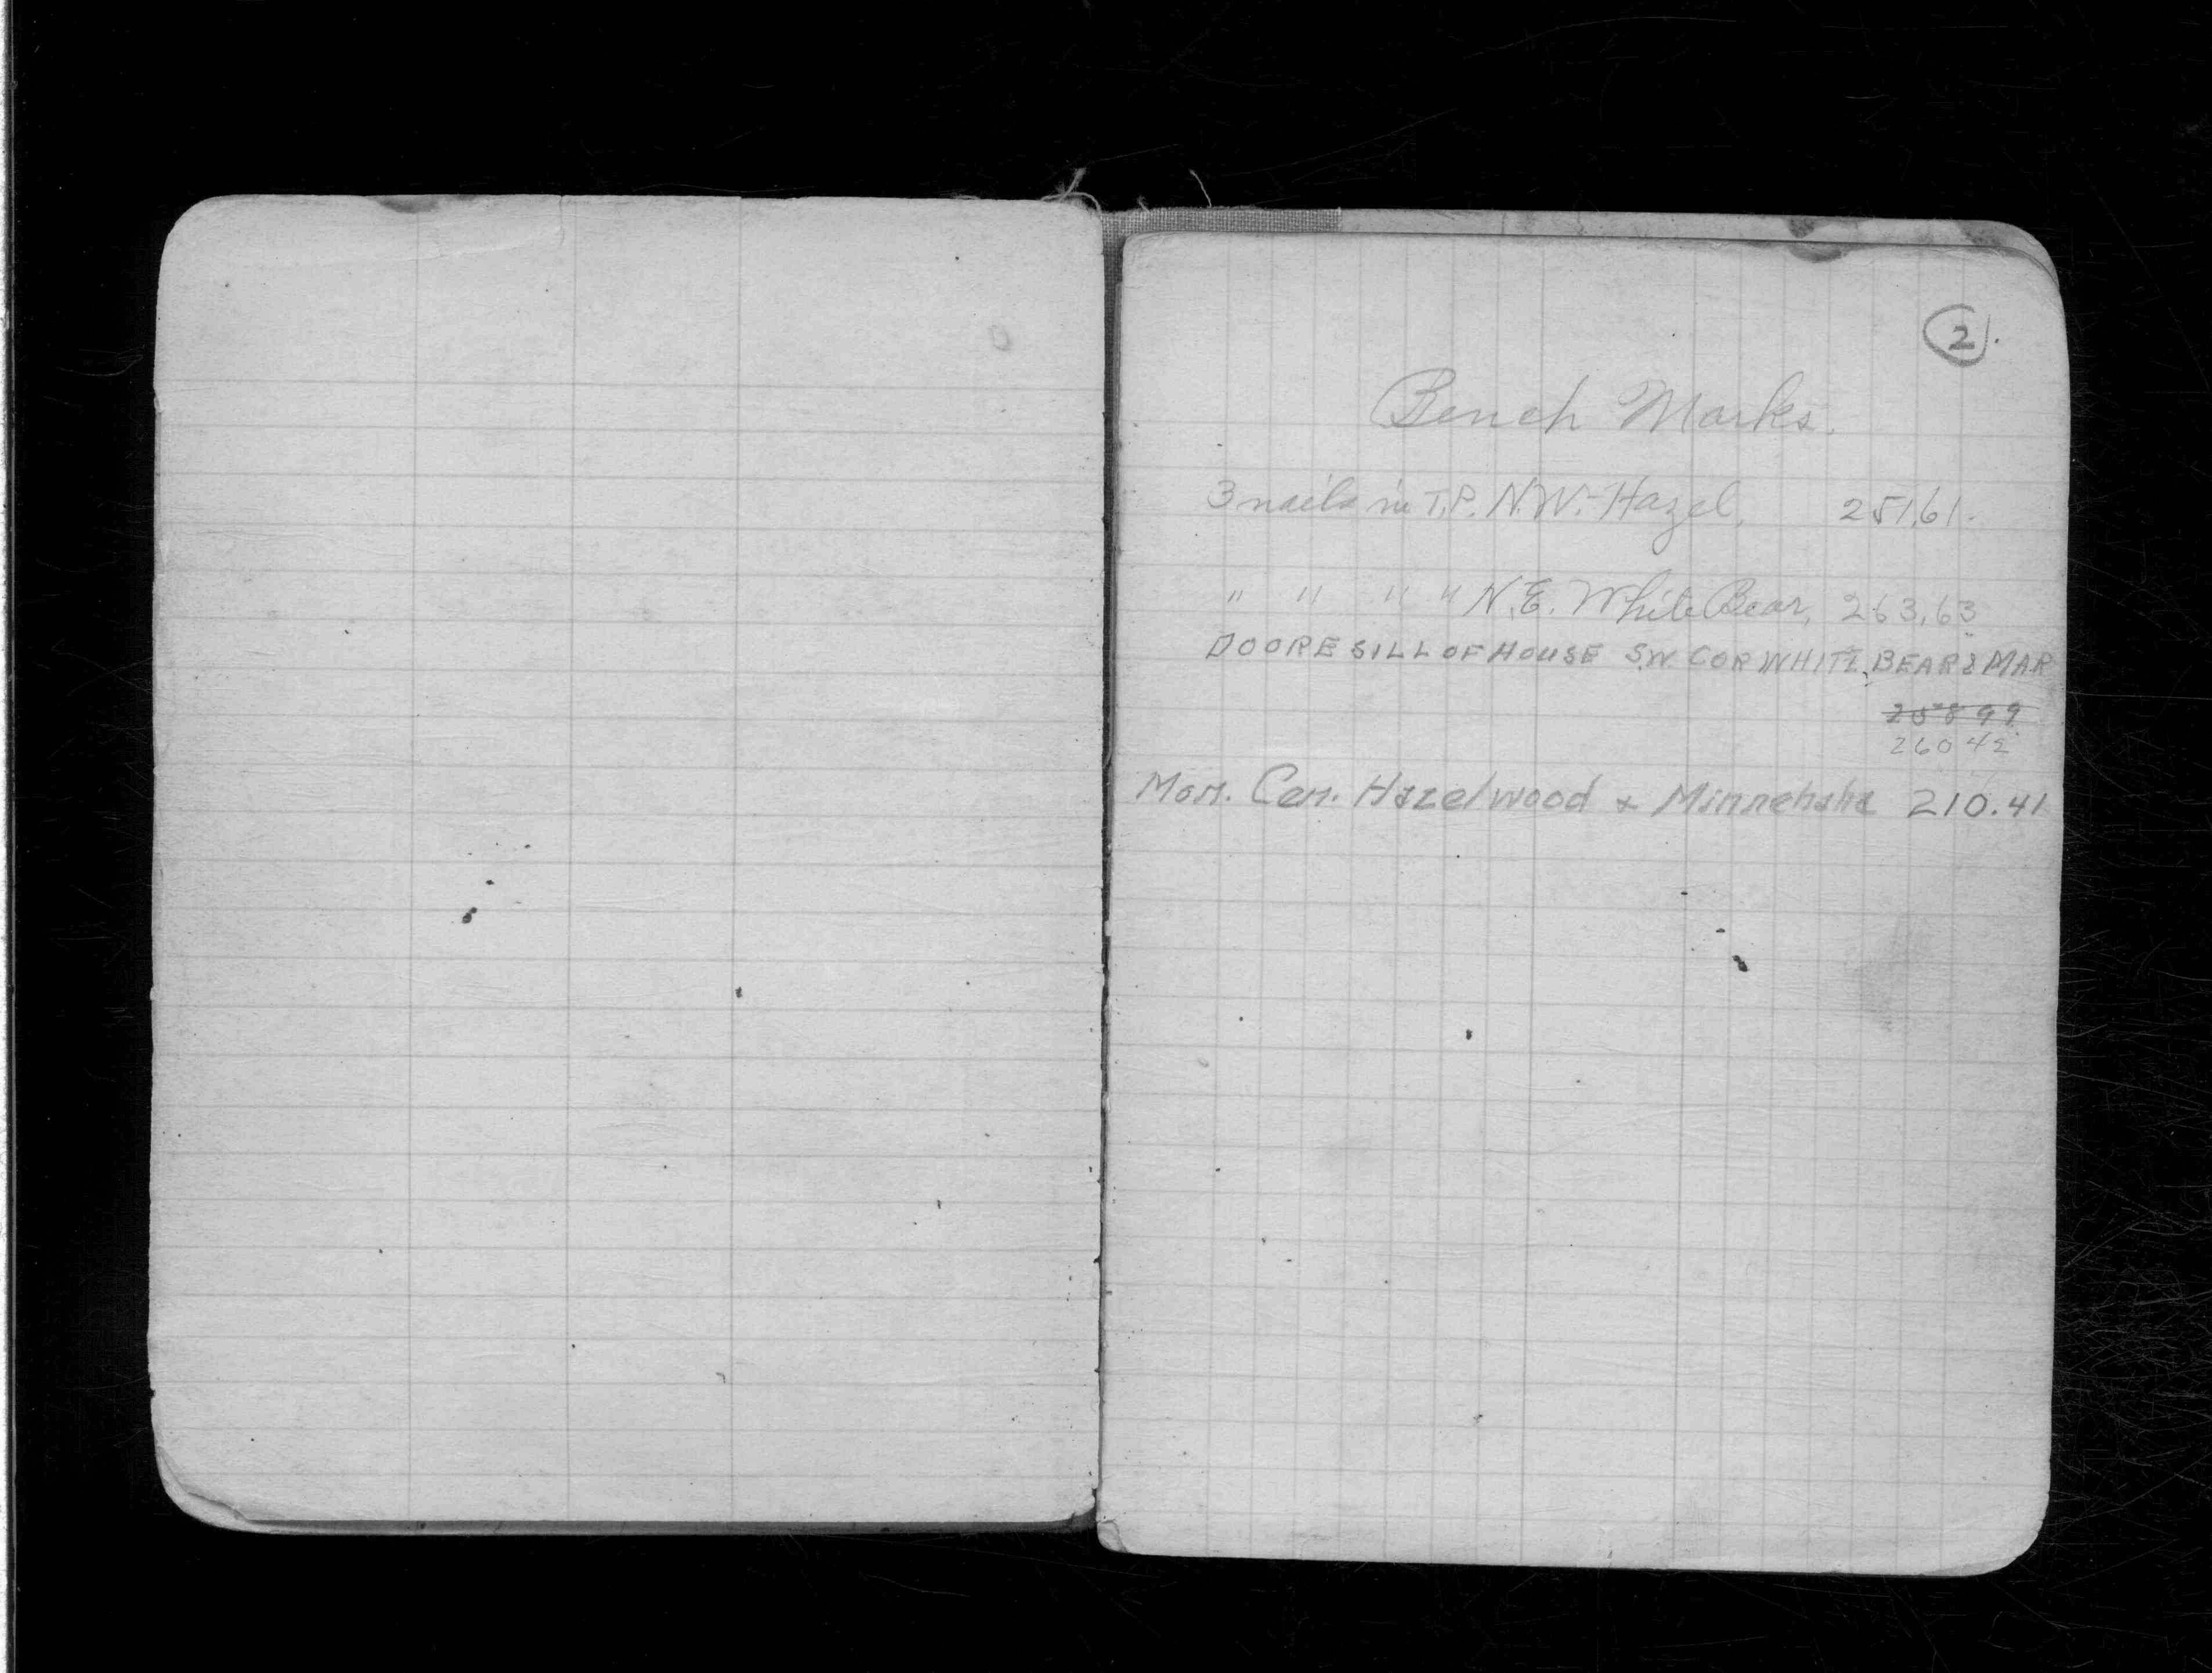 2.
Bench Marks.
3 nails in T.P. N.W. Hazel. 251.61.
" " " " N.E. White Bear, 263.63
DOORE SILL OF HOUSE S.W. COR WHITE BEAR & MAR
258 99
260 42
Mon. Cen. Hazelwood & Minnehaha 210.41